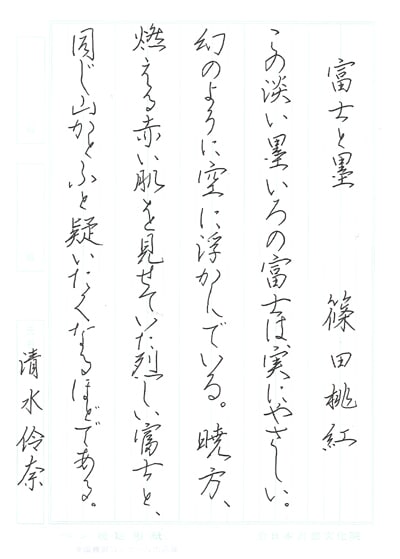 富士と墨 篠田桃紅
この淡い墨いろの富士は、実にやさしい。
幻のように空に浮かんでいる。暁方、
燃える赤い肌を見せていた烈しい富士と、
同じ山かとふと疑いたくなるほどである。
清水伶奈